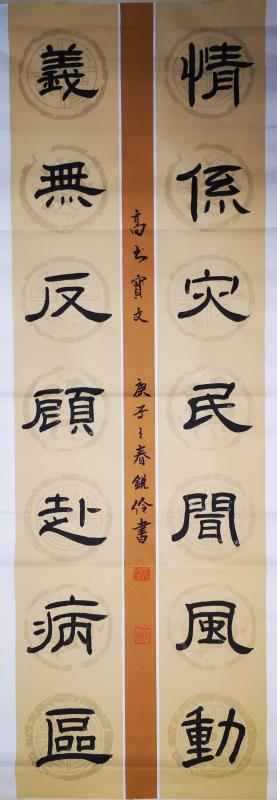 情係灾民聞風動
義無反顧赴病區
庚子之春銳伶書